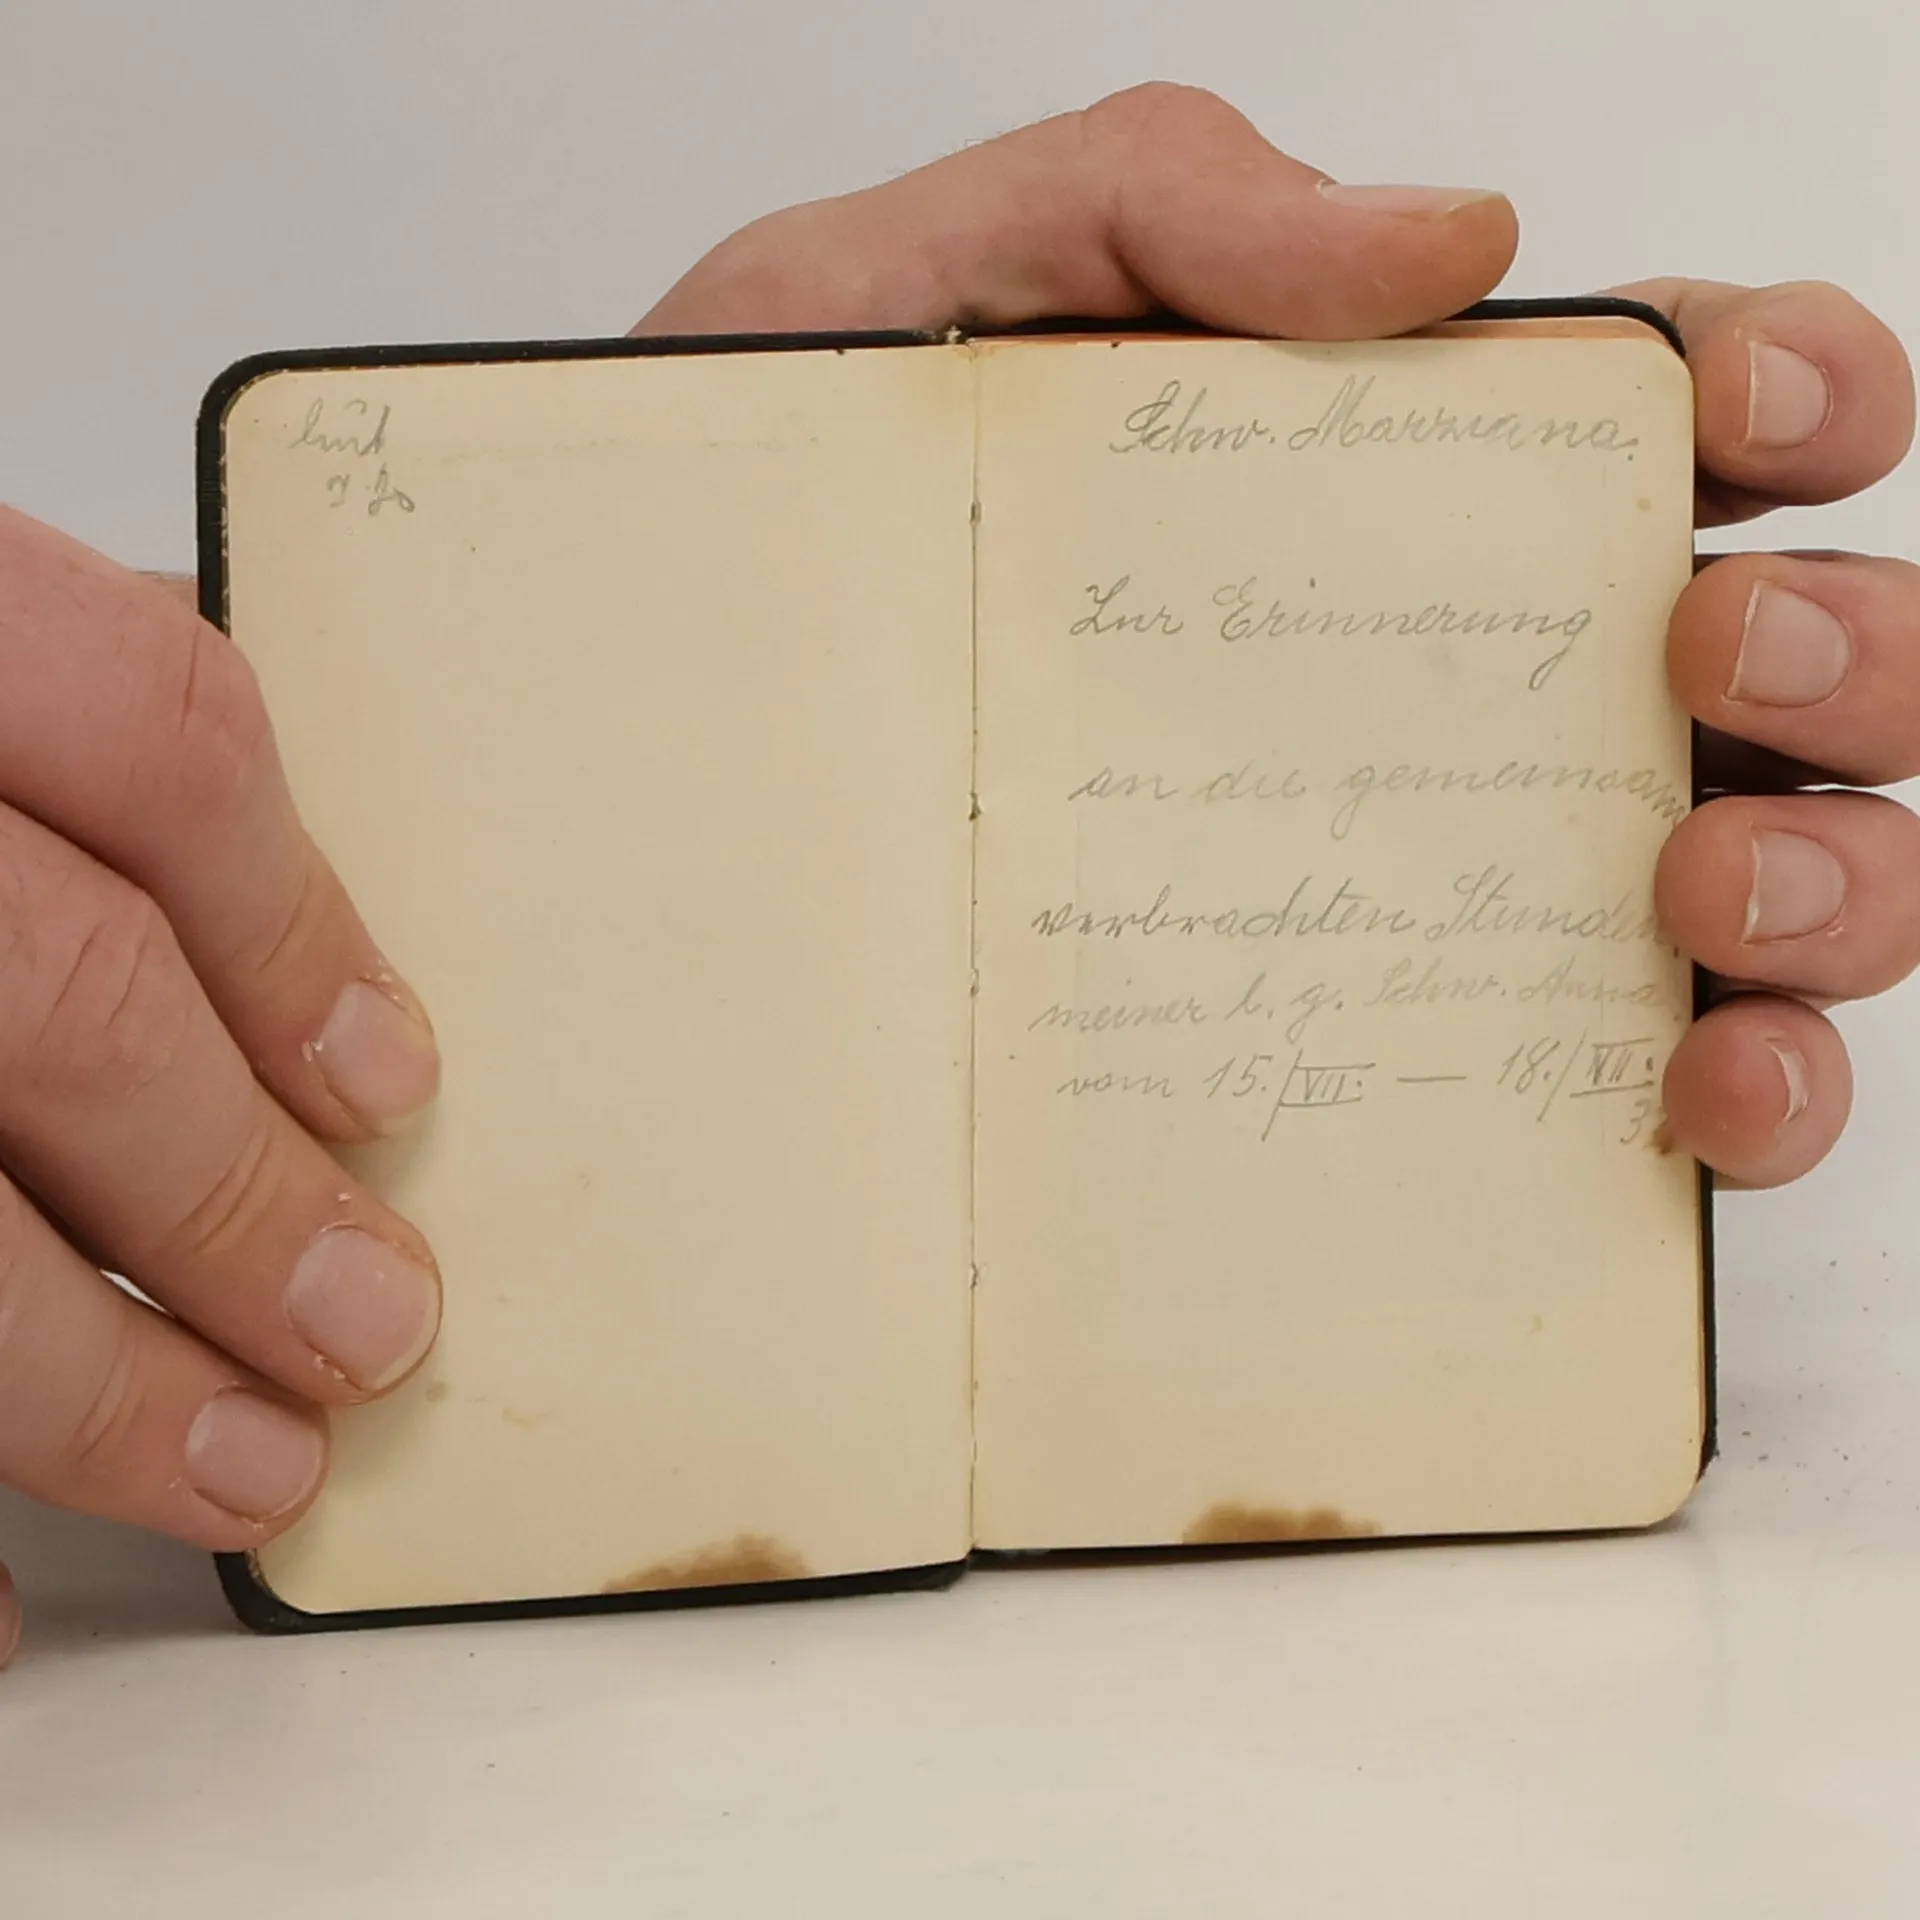 Schw. Marziana.
Zur Erinnerung
an die gemeinsam
verbrachten Stunden
meiner l. g. Schw. Anna
vom 15./VII. — 18./VII.